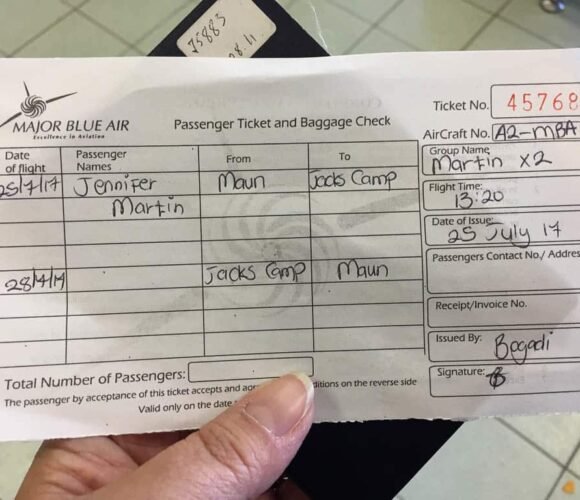 J5883
28.11
MAJOR BLUE AIR
Excellence in Aviation
Passenger Ticket and Baggage Check
Ticket No. 45768
AirCraft No. A2-MBA
Date of flight
Passenger Names
From
To
25/7/17 Jennifer Maun Jacks Camp
Martin
28/7/17 Jacks Camp Maun
Group Name
Martin x2
Flight Time:
13:20
Date of Issue:
25 July 17
Passengers Contact No./ Addres
Receipt/Invoice No.
Issued By: Bogadi
Signature:
Total Number of Passengers:
The passenger by acceptance of this ticket accepts and ditions on the reverse side
Valid only on the date